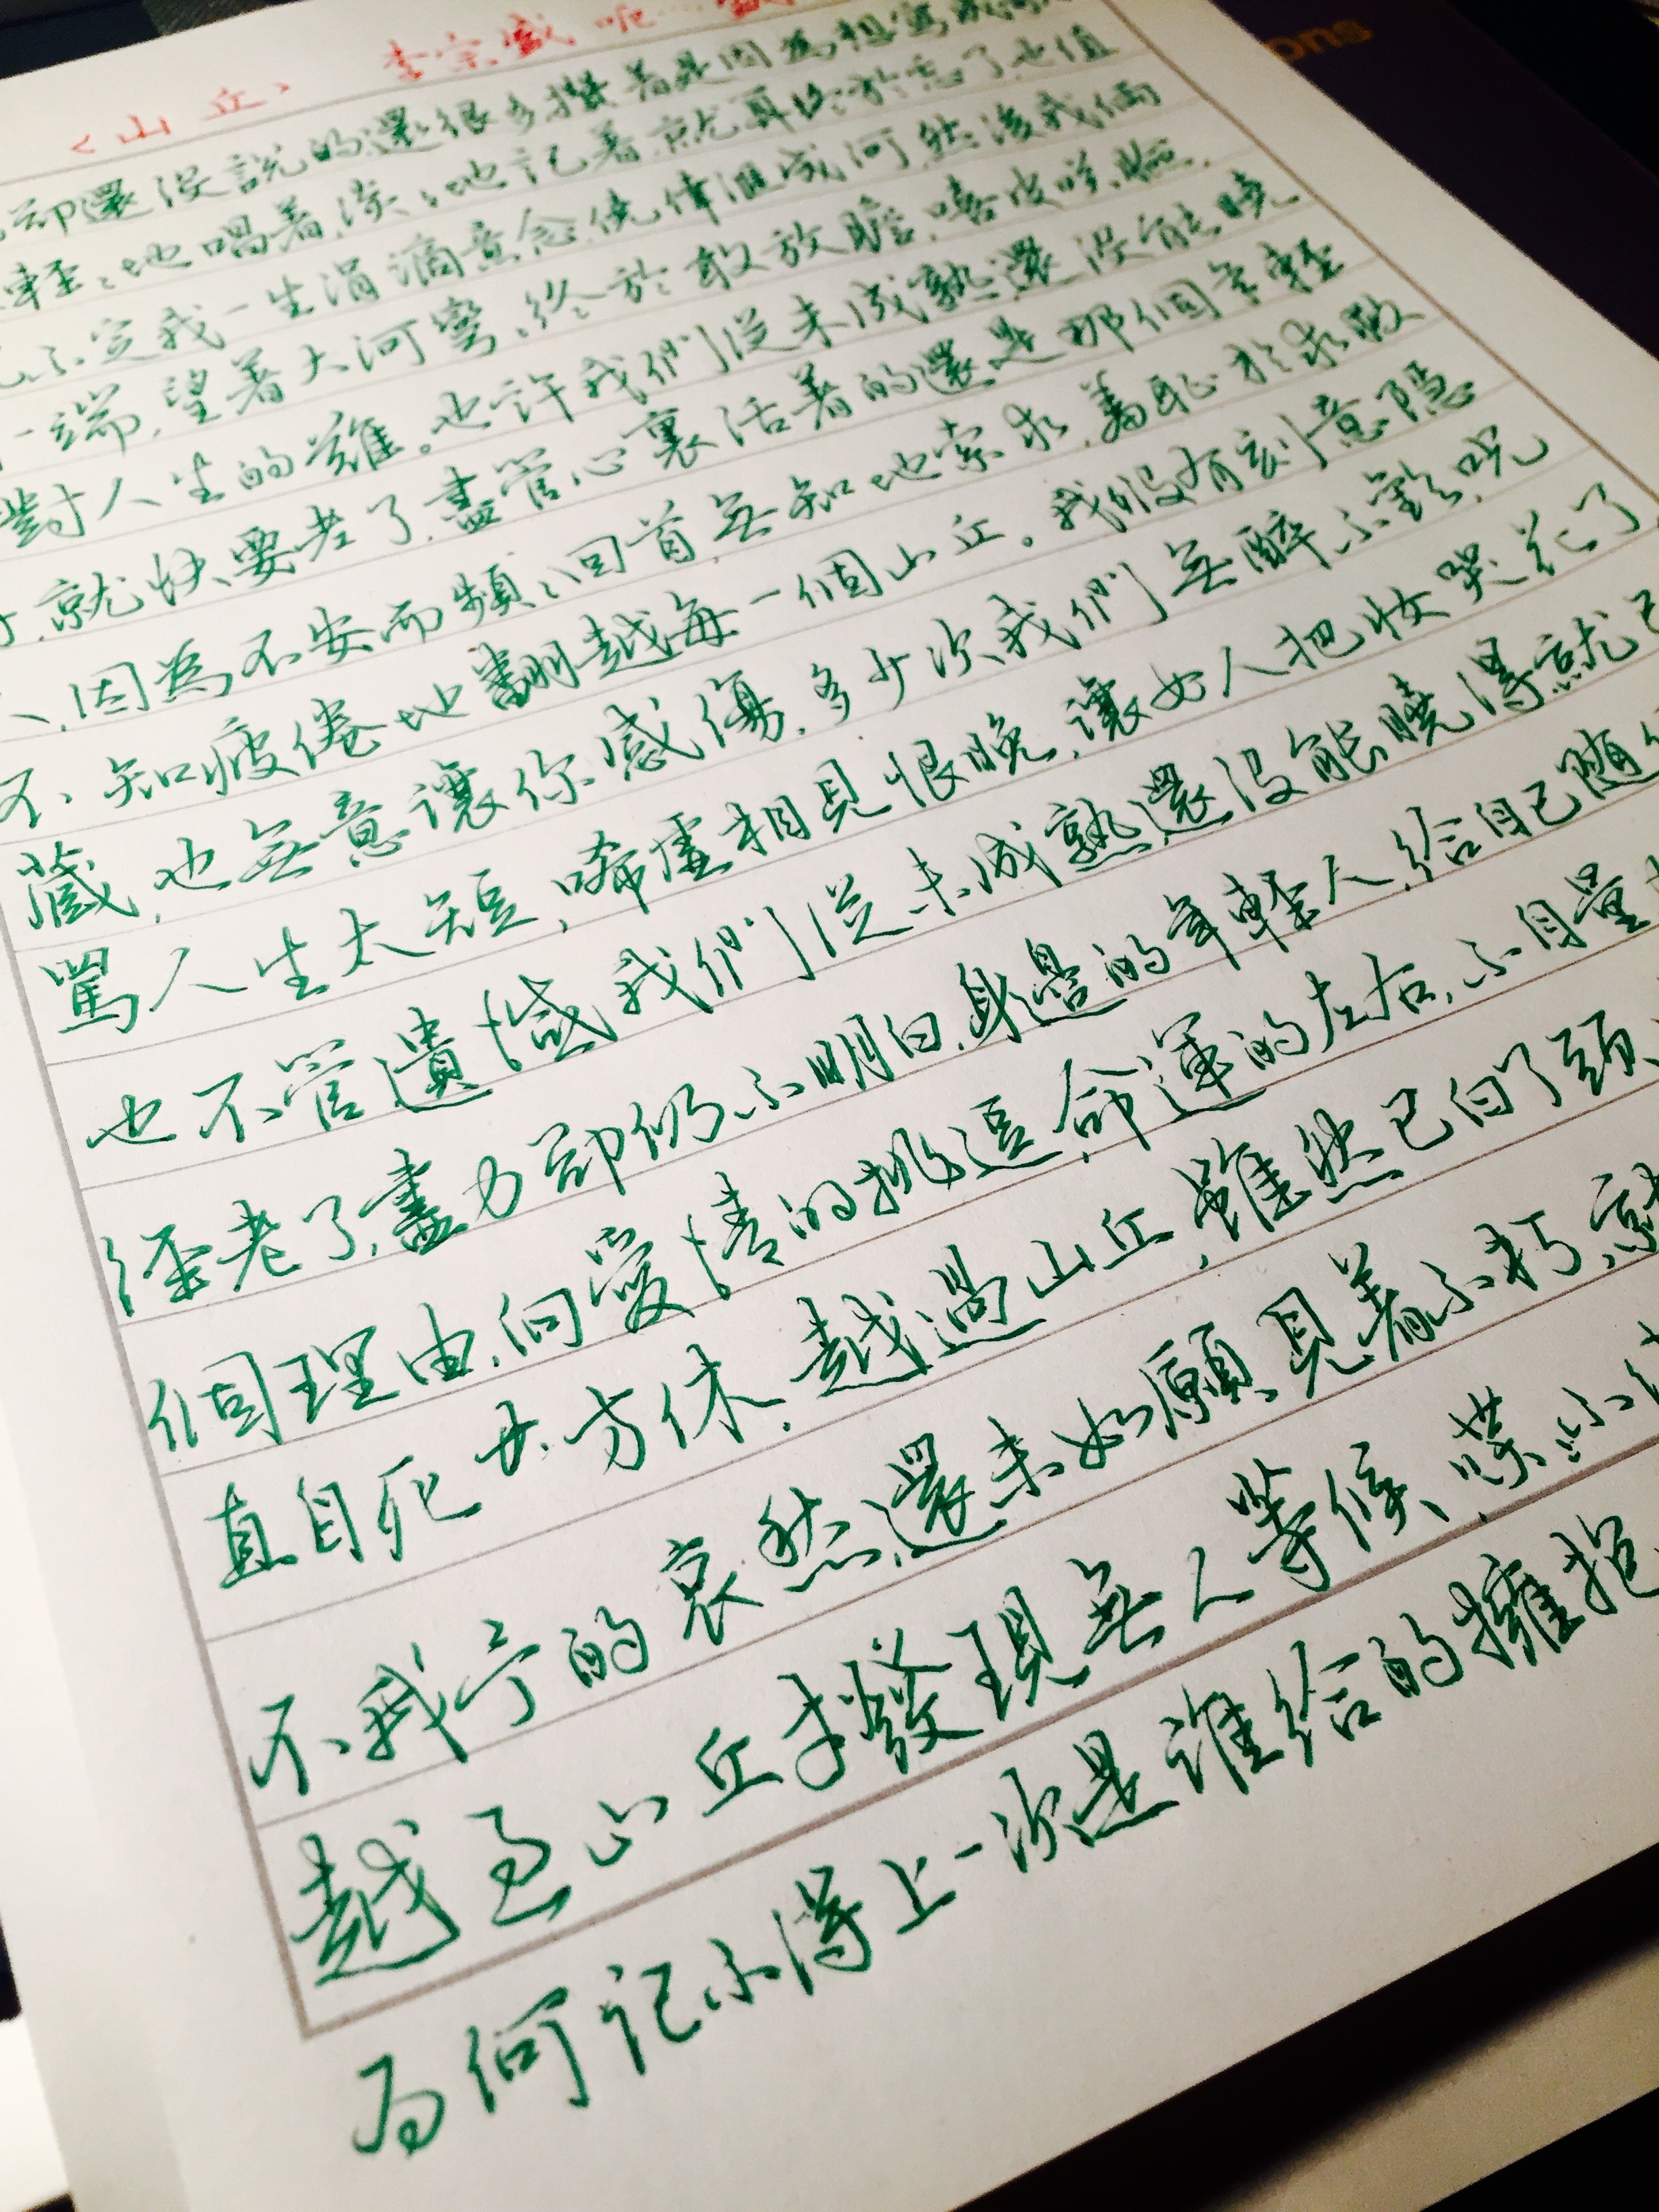 <山丘> 李宗盛 呃…
ons
卻還沒說的還很多攢著是因為想寫成
輕、地唱著淡、地記著就算終於忘了也值
不定我一生涓滴意念僥倖匯成河然後我倆
一端,望著大河彎,終於敢放膽,嘻皮笑臉,
對人生的難。也許我們從未成熟,還沒能曉
,就快要老了,盡管心裏活著的還是那個年輕
人,因為不安而頻、回首,無知地索求,羞恥於求救
不、知疲倦地翻越每一個山丘。我沒有刻意隱
藏,也無意讓你感傷,多少次我們無醉不歡,咒
罵人生太短,唏噓相見恨晚,讓女人把妝哭花了,
也不管遺憾我們從未成熟,還沒能曉得就已
經老了,盡力卻仍不明白,身邊的年輕人,給自己隨
個理由,向愛情的挑逗,命運的左右,不自量
直自死方休,越過山丘,雖然已白了頭,
不我予的哀愁,還未如願見着不朽,就
越過山丘才發現無人等候,喋喋不
為何記不得上一次是誰給的擁抱